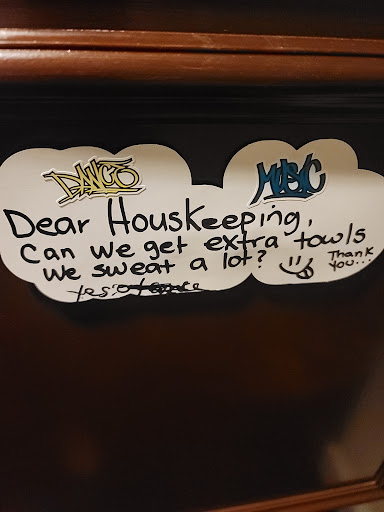 DANCE MUSIC
Dear Houskeeping,
Can we get extra towls
we sweat a lot?
Thank
You...
yes